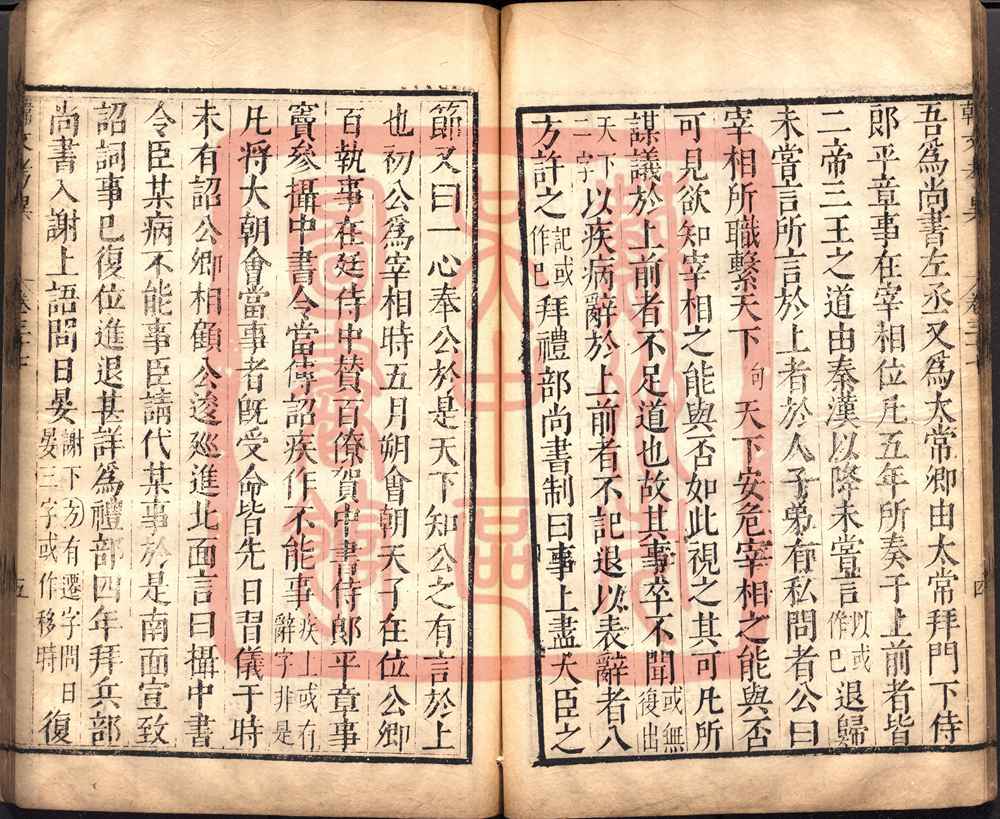 吾爲尚書左丞又爲太常卿由太常拜門下侍
郎平章事在宰相位凡五年所奏于上前者皆
二帝三王之道由秦漢以降未嘗言以或作巳退歸
未嘗言所言於上者於人子弟有私問者公曰
宰相所職繫天下句天下安危宰相之能與否
可見欲知宰相之能與否如此視之其可凡所
謀議於上前者不足道也故其事卒不聞或無後出
天下二字以疾病辭於上前者不記退以表辭者八
方許之記或作巳拜禮部尚書制曰事上盡大臣之
節又曰一心奉公於是天下知公之有言於上
也初公爲宰相時五月朔會朝天子在位公卿
百執事在廷侍中贊百僚賀中書侍郎平章事
竇參攝中書令當傳詔疾作不能事疾上或有辭字非是
凡將大朝會當事者旣受命皆先日習儀于時
未有詔公卿相顧公逡廵進北面言曰攝中書
令臣某病不能事臣請代某事於是南面宣致
詔詞事巳復位進退甚詳爲禮部四年拜兵部
尚書入謝上語問日晏謝下方有遷字問日晏三字或作移時復
韓文考異
卷三十七
四
五